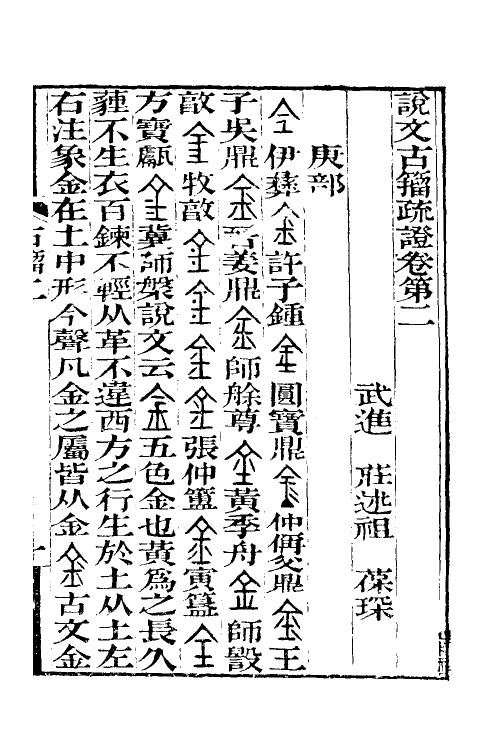 說文古籀疏證卷第二
武進 莊述祖 葆琛
庚部
伊彝 許子鍾 圓寶鼎 仲偁父鼎 王
子吳鼎 晉姜鼎 師艅尊 黃季舟 師毀
敔 牧敔 張仲簠 寅簋
方寶甗 冀師槃說文云 五色金也黃爲之長久
薶不生衣百鍊不輕从革不違西方之行生於土从土左
右注象金在土中形今聲凡金之屬皆从金 古文金
古籀二